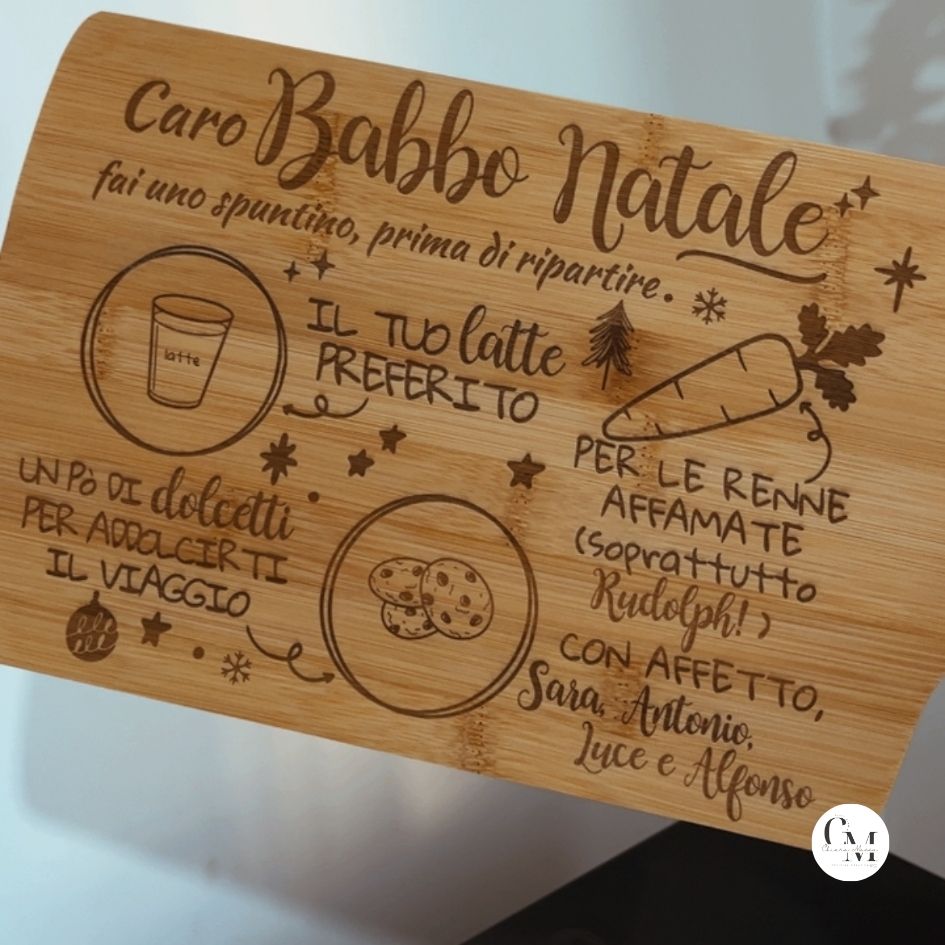 Caro Babbo Natale
fai uno spuntino, prima di ripartire.
latte
IL TUO latte
PREFERITO
PER LE RENNE
AFFAMATE
(soprattutto
Rudolph!)
UN Pò DI dolcetti
PER ADDOLCIRTI
IL VIAGGIO
CON AFFETTO,
Sara, Antonio,
Luce e Alfonso
CM